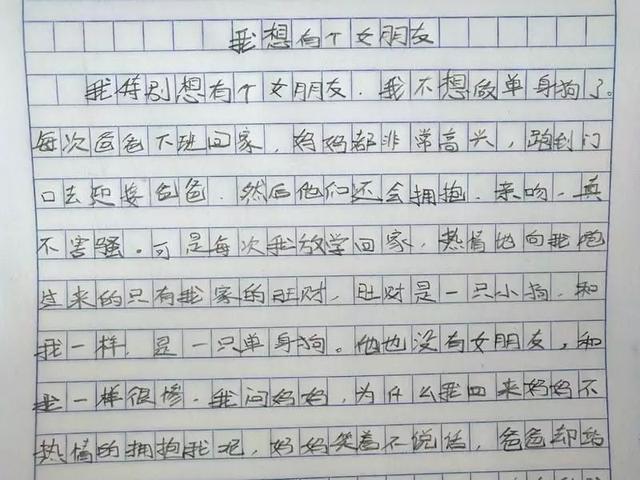 我想有个女朋友
我特别想有个女朋友，我不想做单身狗了。
每次爸爸下班回家，妈妈都非常高兴，跑到门
口去迎接爸爸，然后他们还会拥抱，亲吻，真
不害骚。可是每次我放学回家，热情地向我跑
过来的只有我家的旺财，旺财是一只小狗，和
我一样，是一只单身狗。他也没有女朋友，和
我一样很惨。我问妈妈，为什么我回来妈妈不
热情的拥抱我呢，妈妈笑着不说话，爸爸却